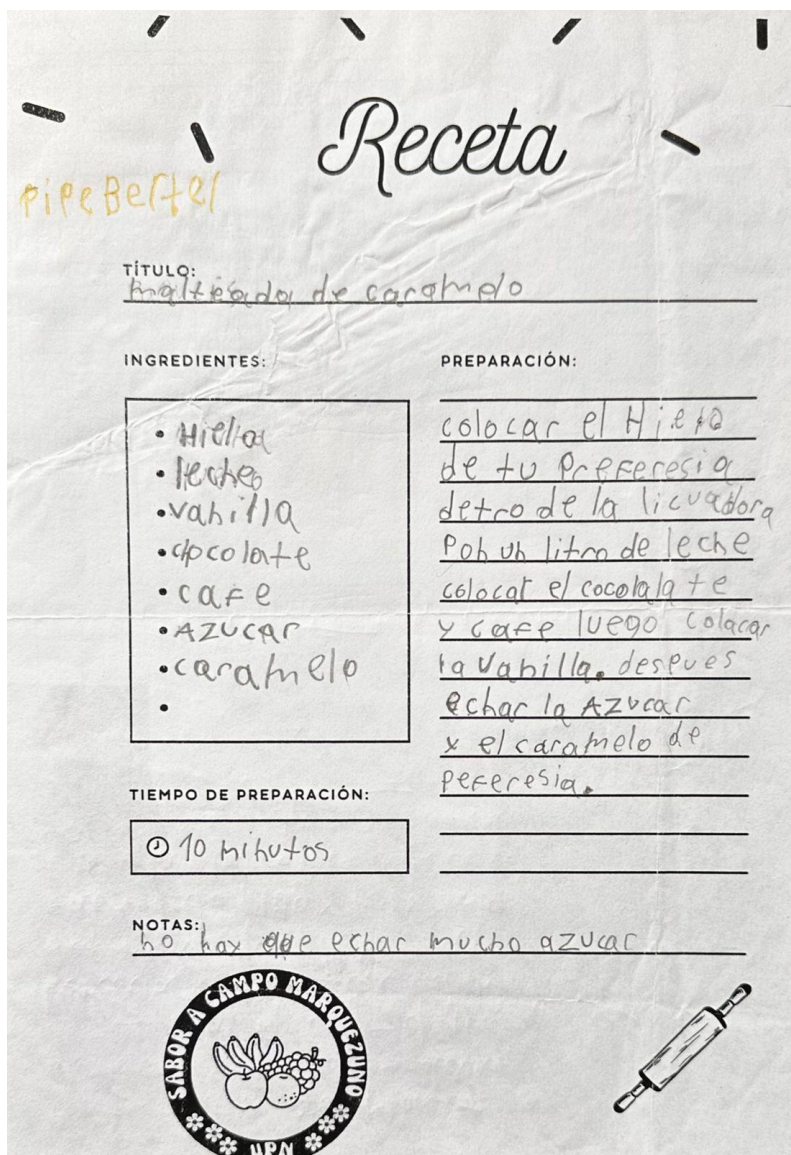 Receta
pipe Bertel
TÍTULO:
malteada de caramelo
INGREDIENTES:
• Hiella
• leche
• vanilla
• chocolate
• cafe
• AZUCAR
• caramelo
•
TIEMPO DE PREPARACIÓN:
10 minutos
PREPARACIÓN:
colocar el Hielo
de tu preferesia
detro de la licuadora
Pon un litro de leche
colocar el cocolalate
y cafe luego colacar
la vanilla. despues
echar la AZucar
y el caramelo de
peferesia.
NOTAS:
no hay que echar mucho azucar
SABOR A CAMPO MARQUEZUNO
UPN